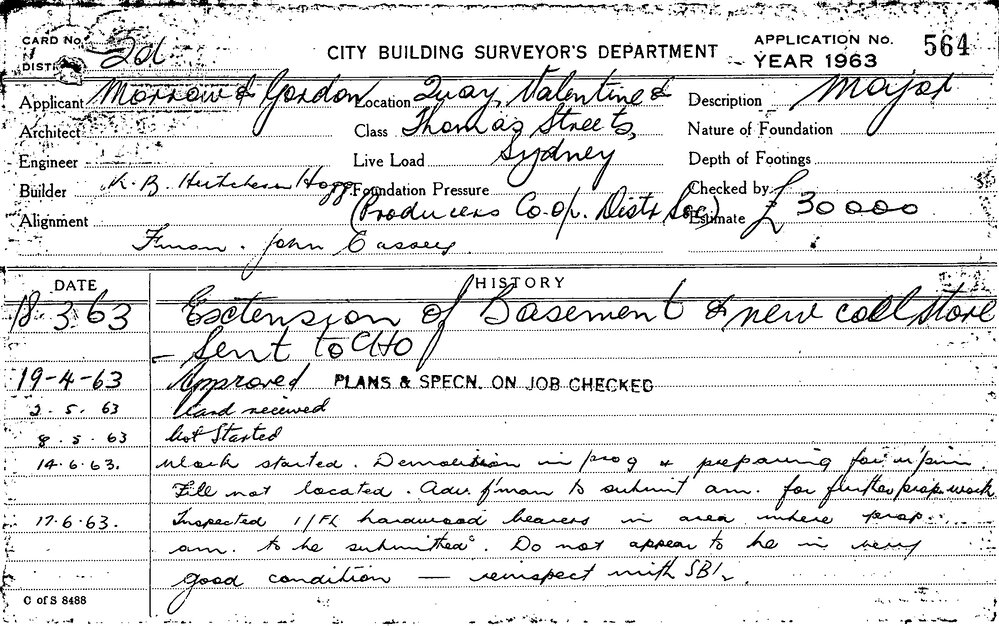 CARD No. 2d
DIST.
CITY BUILDING SURVEYOR'S DEPARTMENT
APPLICATION No. 564
YEAR 1963
Applicant Morrow & Gordon
Location Quay, Valentine &
Description Major
Architect
Class Thomas Streets,
Nature of Foundation
Engineer
Live Load Sydney
Depth of Footings
Builder K. B. Hutcheson Hogg
Foundation Pressure
Checked by
Alignment
(Producers Co-op. Distr Soc)
Estimate £30000
F'man. John Cassey
DATE
HISTORY
18.3.63 Extension of Basement & new cool store
– Sent to CHO
19-4-63 Approved PLANS & SPECN. ON JOB CHECKED
2.5.63 Card received
8.5.63 Not Started
14.6.63. Work started. Demolition in prog & preparing for
File not located. Adv. f'man to submit am. for further prop work
17.6.63. Inspected 1/FL hardwood bearers in area where prop.
am. to be submitted. Do not appear to be in very
good condition — reinspect with SBI.
C of S 8488